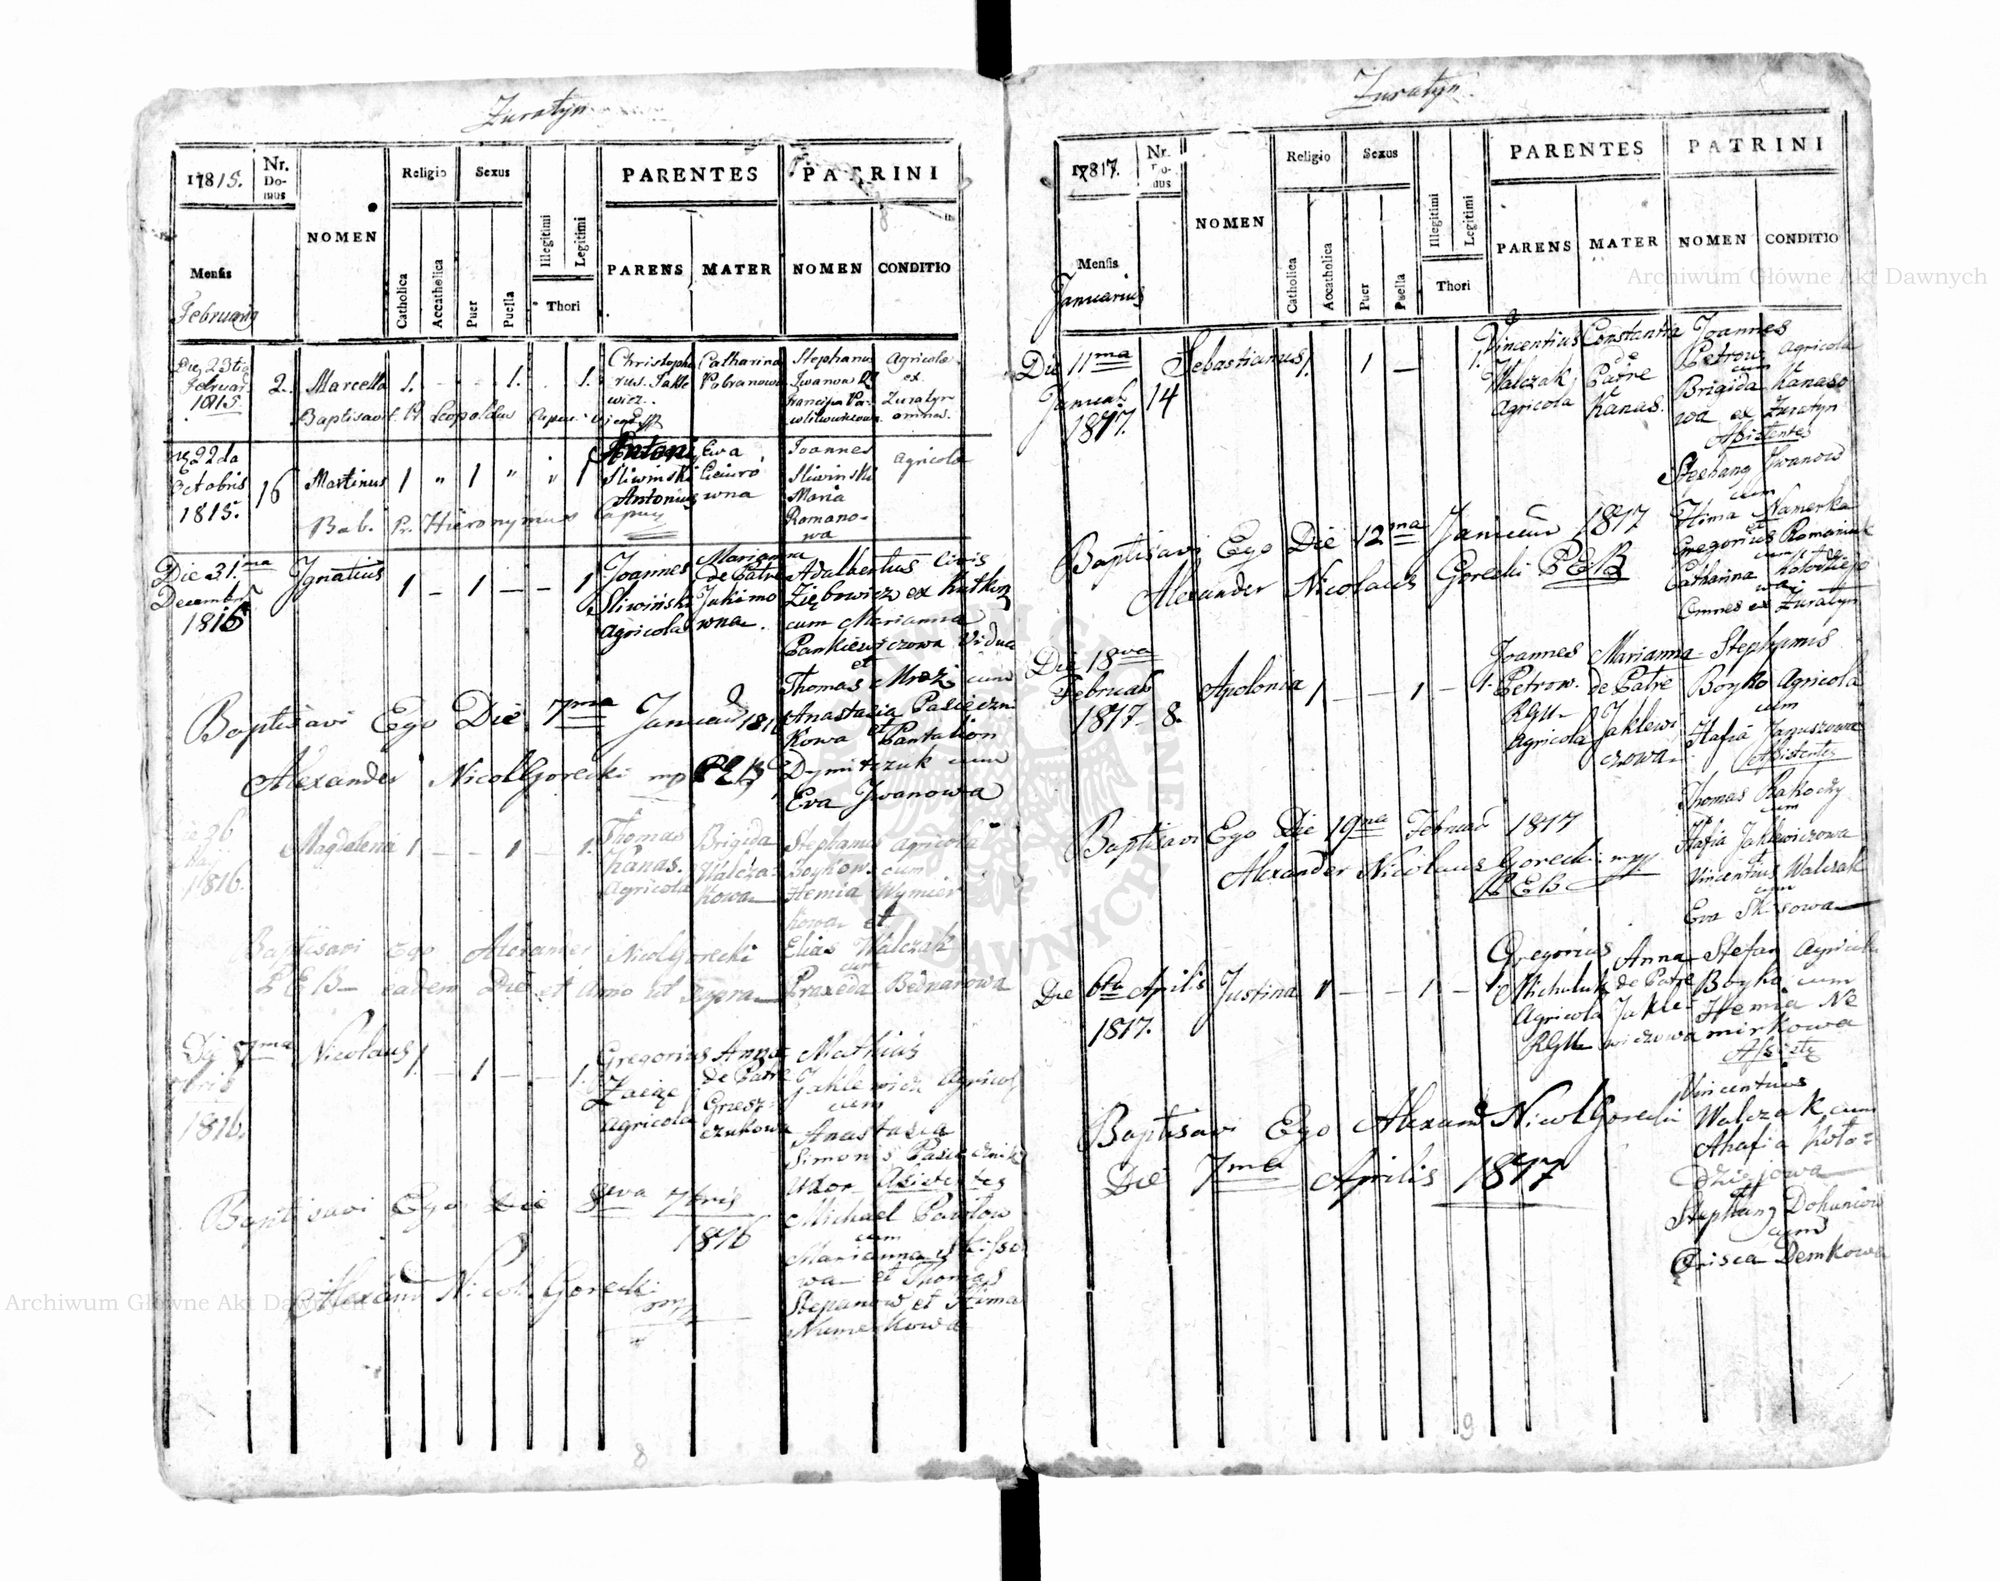 Żuratyn
1815.
Nr. Domus
NOMEN
Religio
Sexus
Illegitimi
Legitimi
PARENTES
PATRINI
Mensis
Februarij
Catholica
Accatholica
Puer
Puella
Thori
PARENS
MATER
NOMEN
CONDITIO
Die 23tia
Februar
1815.
2.
Marcella
1. - - 1. . 1.
Christopho
rus. Jakle
wicz.
Catharina
Pobranowa
Stephanus
Iwanow
Agricola
ex
Żuratyn
omnes.
Baptisavit P. Leopoldus Capuc:
22da
Octobris
1815.
16
Martinus
1 " 1 " " 1
Antoni
Sliwinski
Antonius
Ewa
wna
Joannes
Sliwinski
Maria
Romano-
wa
Agricola
Bab. Pr. Hieronymus Capuc
Die 31ma
Decembr
1816
Ignatius
1 - 1 - - 1
Joannes
Sliwiński
Agricola
Marianna
de Patre
Jakimo
wna.
Adalbertus Civis
Ziębowicz ex Kutkorz
cum Marianna
Pankiewiczowa Vidua
et
Thomas Mroz cum
Anastasia Pasieczn-
kowa et Pantalion
Dymitrzuk cum
Eva Iwanowa
Baptisavi Ego Die 7ma Januar 1816
Alexander Nicol Gorecki mp P E B
Die 26
Maj
1816.
Magdalena
1 - - 1 - 1.
Thomas
Kanas.
Agricola
Brigida
Walcza-
kowa
Stephanus Agricola
Boykow. cum
Hemia Wymier
kowa et
Elias Walczak
cum
Praxeda Bednarowa
Baptisavi Ego Alexander Nicol Gorecki
P E B eadem Die et Anno ut Supra
7ma
7bris
1816.
Nicolaus
1. - 1 - - 1.
Gregorius
Zaiąc
Agricola
Anna
de Patre
Griesz-
czukowa
Mathias
Jaklewicz Agricol
cum
Anastasia
Simonis Pasiecznik
Uxor Asistentes
Michael Pawłow
cum
Marianna
wa et Thomas
Stepanow et Hima
Numerkowa
Baptisavi Ego Die 8va 7bris
1816
Alexand Nicol. Gorecki
mp
8
Żuratyn
1817.
Nr. Domus
NOMEN
Religio
Sexus
Illegitimi
Legitimi
PARENTES
PATRINI
Mensis
Januarius
Catholica
Accatholica
Puer
Puella
Thori
PARENS
MATER
NOMEN
CONDITIO
Die 11ma
Januar
1817.
14
Sebastianus
1. 1 - 1.
Vincentius
Walczak
Agricola
Constantia
de
Patre
Kanas.
Joannes
Petrow Agricola
cum
Brigida Kanaso
wa ex Żuratyn
Assistentes
Stephang Iwanow
cum
Hima Namerka
et
Gregorius Romaniuk
cum
Catharina Kołodziejo
wa
Omnes ex Żuratyn
Baptisavi Ego Die 12ma Januar 1817
Alexander Nicolaus Gorecki P E B
Die 18va
Februar
1817 8.
Apolonia
1 - - 1 - 1.
Joannes
Petrow.
RGU
Agricola
Marianna
de Patre
Jaklewi
czowa
Stephanus
Boyko Agricola
cum
Hafia Januszowa
Assistentes
Thomas Rakoczy
cum
Hafia Jaklewiczowa
et
Vincentius Walczak
cum
Eva
Baptisavi Ego Die 19na Februar 1817
Alexander Nicolaus Gorecki mpp
P E B
Die 6ta Aprilis
1817.
Justina
1 - - 1 - 1
Gregorius
Michuluk
Agricola
RGU
Anna
de Patre
Jakle-
wiczowa
Stefan Agricola
Boyko cum
Hemia Ne
mirkowa
Assistę
Vincentius
Walczak cum
Ahafia Koło-
dziejowa
Stephang Dohaniow
cum
Orisca Demkowa
Baptisavi Ego Alexand Nicol Gorecki
Die 7ma Aprilis 1817
9
Archiwum Główne Akt Dawnych
Archiwum Główne Akt Dawnych